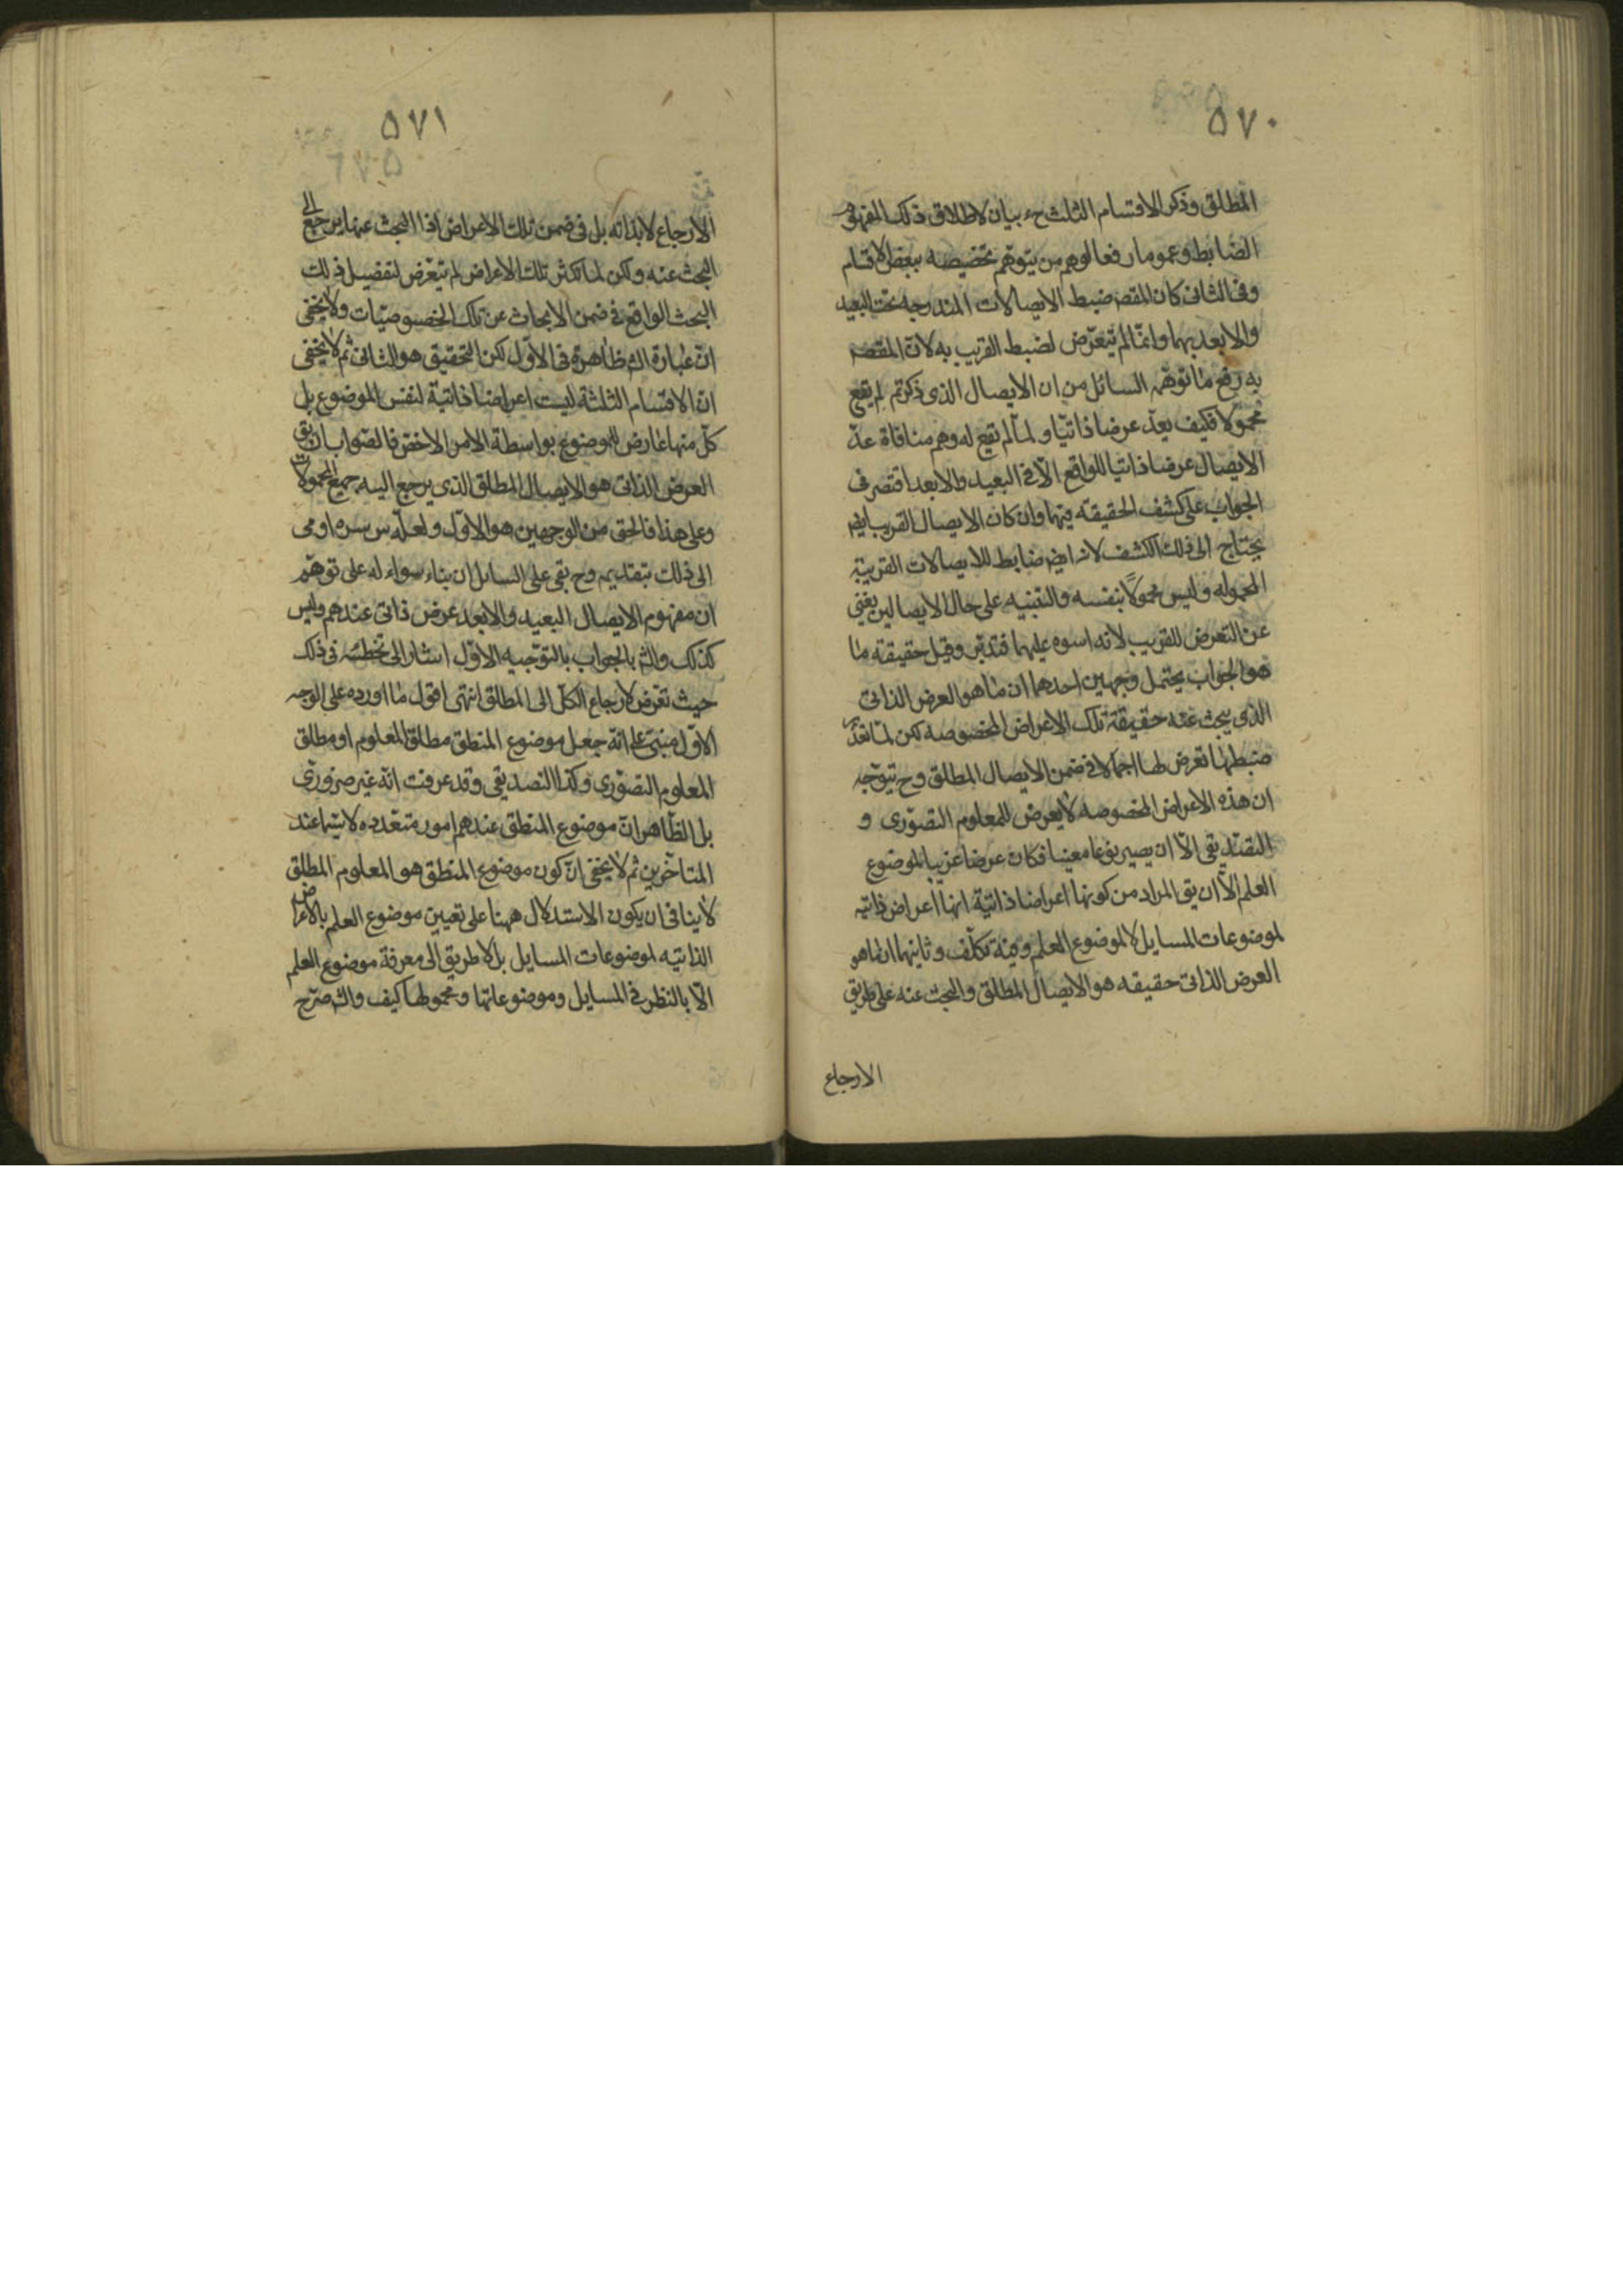 ٥٧٠
المطلق وذكر الاقسام الثلث ح بيان لاطلاق ذلك المفهوم
الضابط وعمومه رفعا لوهم من يتوهم تخصيصه ببعض الاقسام
وفى الثانى كان المقصد ضبط الايصالات المندرجه تحت البعيد
والابعد بهما وانما لم يتعرض لضبط القريب به لان المقصد
به رفع ما توهمه السائل من ان الايصال الذى ذكرتم لم يقع
محمولا فكيف يعد عرضا ذاتيا ولما لم يقع له وهم منافاة عد
الايصال عرضا ذاتيا للواقع الا فى البعيد والابعد اقتصر فى
الجواب على كشف الحقيقه فيهما وان كان الايصال القريب ايضا
يحتاج الى ذلك الكشف لانه ايضا ضابط للايصالات القريبة
المحموله وليس محمولا بنفسه والتنبيه على حال الايصالين يغنى
عن التعرض للقريب لانه اسوه عليهما فتدبر وقيل حقيقة ما
هو الجواب يحتمل وجهين احدهما ان ما هو العرض الذاتى
الذى يبحث عنه حقيقة تلك الاعراض المخصوصه لكن لما تعذر
ضبطها تعرض لها اجمالا فى ضمن الايصال المطلق وح يتوجه
ان هذه الاعراض المخصوصه لا يعرض للمعلوم التصورى و
التصديقى الا ان يصير نوعا معينا فكان عرضا غريبا لموضوع
العلم الا ان يق المراد من كونها اعراضا ذاتية انها اعراض ذاتيه
لموضوعات المسايل لا لموضوع العلم وفيه تكلف وثانيهما ان ما هو
العرض الذاتى حقيقه هو الايصال المطلق والبحث عنه على طريق
الارجاع
٥٧١
الارجاع لا بذاته بل فى ضمن تلك الاعراض اذا البحث عنها يرجع الى
البحث عنه ولكن لما تكثر تلك الاعراض لم يتعرض لتفصيل ذلك
البحث الواقع فى ضمن الابحاث عن تلك الخصوصيات ولا يخفى
ان عبارة الش ظاهرة فى الاول لكن التحقيق هو الثانى ثم لا يخفى
ان الاقسام الثلثة ليست اعراضا ذاتية لنفس الموضوع بل
كل منها عارض للموضوع بواسطة الامر الاخص فالصواب ان يق
العرض الذاتى هو الايصال المطلق الذى يرجع اليه جميع المحمولات
وعلى هذا فالحق من الوجهين هو الاول ولعله س سره اومى
الى ذلك بتقديمه وح بقى على السايل ان بناء سواله على توهم
ان مفهوم الايصال البعيد والابعد عرض ذاتى عندهم وليس
كذلك والش بالجواب بالتوجيه الاول اشار الى تخطئته فى ذلك
حيث تعرض لارجاع الكل الى المطلق انتهى اقول ما اورده على الوجه
الاول مبنى على انه جعل موضوع المنطق مطلق المعلوم او مطلق
المعلوم التصورى وكذا التصديقى وقد عرفت انه غير ضرورى
بل الظاهر ان موضوع المنطق عندهم امور متعدده لا سيما عند
المتاخرين ثم لا يخفى ان كون موضوع المنطق هو المعلوم المطلق
لا ينافى ان يكون الاستدلال ههنا على تعيين موضوع العلم بالاعراض
الذاتيه لموضوعات المسايل بل لا طريق الى معرفة موضوع العلم
الا بالنظر فى المسايل وموضوعاتها ومحمولها كيف والش صرح